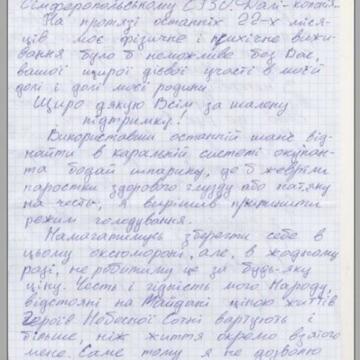 Сімферопольському СІЗО. Далі - копія.
На протязі останніх 22-х міся-
ців моє фізичне і психічне вижи-
вання було б неможливе без Вас,
вашої щирої дієвої участі в моїй
долі і долі моєї родини.
Щиро дякую Всім за шалену
підтримку!
Використавши останній шанс від-
найти в каральній системі окупан-
та бодай шпарину, де б жевріли
паростки здорового глузду або натяку
на честь, я вирішив припинити
режим голодування.
Намагатимусь зберегти себе в
цьому оксюмороні, але, в жодному
разі, не робитиму це за будь-яку
ціну. Честь і гідність мого Народу,
відстояні на Майдані ціною життів
Героїв Небесної Сотні вартують
більше, ніж життя окремо взятого
мене. Саме тому я не дозволю